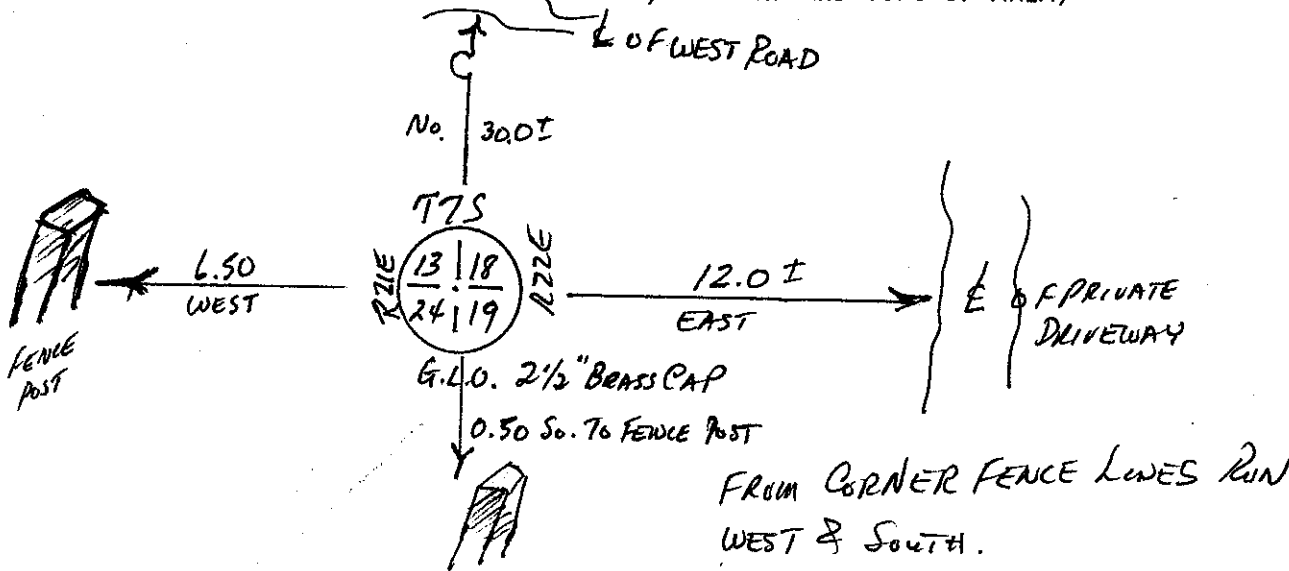 ℄ OF WEST ROAD
No. 30.0±
T7S
R21E 13 18 R22E
24 19
6.50
WEST
12.0±
EAST
℄ OF PRIVATE
DRIVEWAY
FENCE
POST
G.L.O. 2½" BRASS CAP
0.50 SO. TO FENCE POST
FROM CORNER FENCE LINES RUN
WEST & SOUTH.